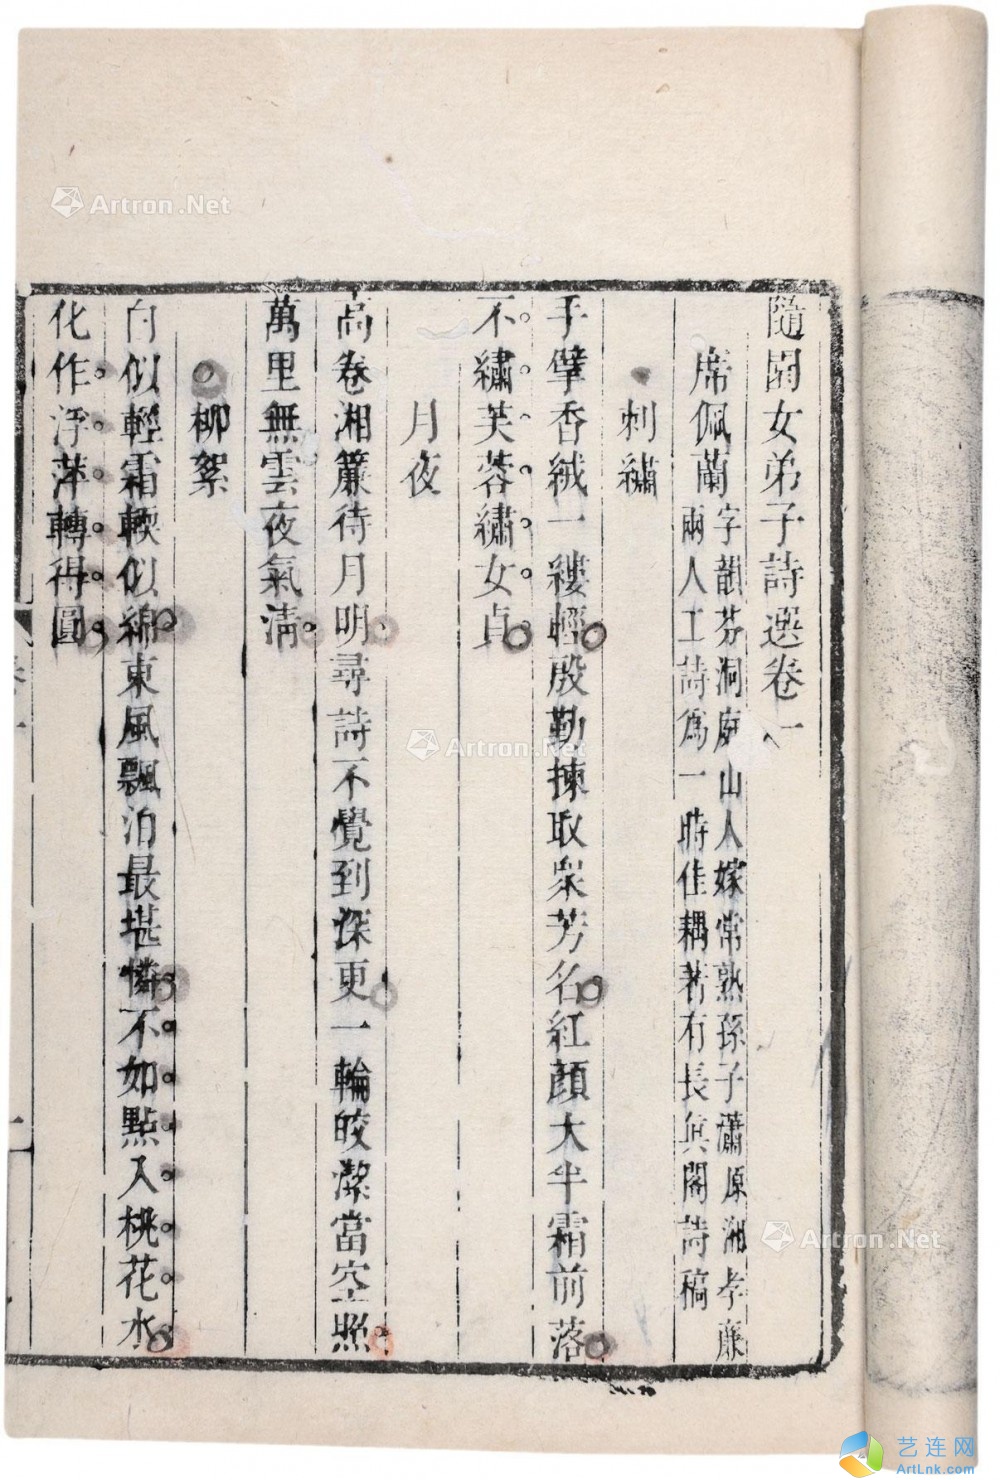 隨園女弟子詩選卷一
席佩蘭
字韻芬洞庭山人嫁常熟孫子瀟原湘孝廉
兩人工詩為一時佳耦著有長眞閣詩稿
刺繡
手擘香絨一縷輕殷勤揀取衆芳名紅顏大半霜前落
不繡芙蓉繡女貞
月夜
高卷湘簾待月明尋詩不覺到深更一輪皎潔當空照
萬里無雲夜氣清
柳絮
白似輕霜輭似綿東風飄泊最堪憐不如點入桃花水
化作浮萍轉得圓
卷一
一
Artron.Net
Artron.Net
Artron.Net
艺连网
ArtLnk.com